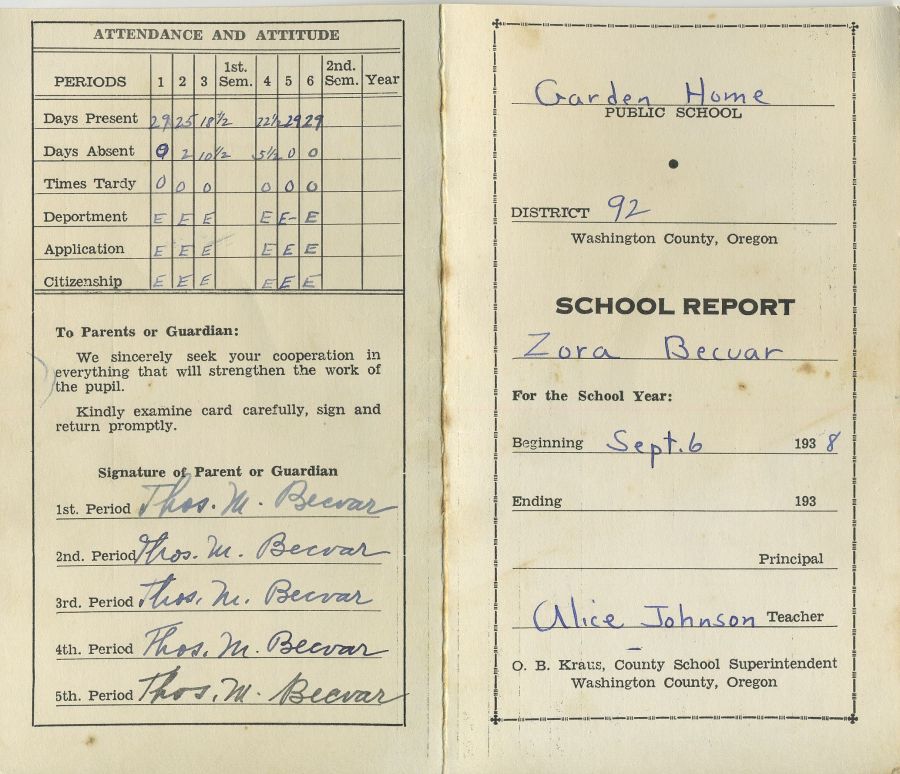 ATTENDANCE AND ATTITUDE
PERIODS 1 2 3 1st. Sem. 4 5 6 2nd. Sem. Year
Days Present 29 25 18 1/2 22 1/2 29 29
Days Absent 0 2 10 1/2 5 1/2 0 0
Times Tardy 0 0 0 0 0 0
Deportment E E E E E- E
Application E E E E E E
Citizenship E E E E E E
To Parents or Guardian:
We sincerely seek your cooperation in
everything that will strengthen the work of
the pupil.
Kindly examine card carefully, sign and
return promptly.
Signature of Parent or Guardian
1st. Period Thos. M. Becvar
2nd. Period Thos. M. Becvar
3rd. Period Thos. M. Becvar
4th. Period Thos. M. Becvar
5th. Period Thos. M. Becvar
Garden Home
PUBLIC SCHOOL
DISTRICT 92
Washington County, Oregon
SCHOOL REPORT
Zora Becvar
For the School Year:
Beginning Sept. 6 1938
Ending 193
Principal
Alice Johnson Teacher
O. B. Kraus, County School Superintendent
Washington County, Oregon